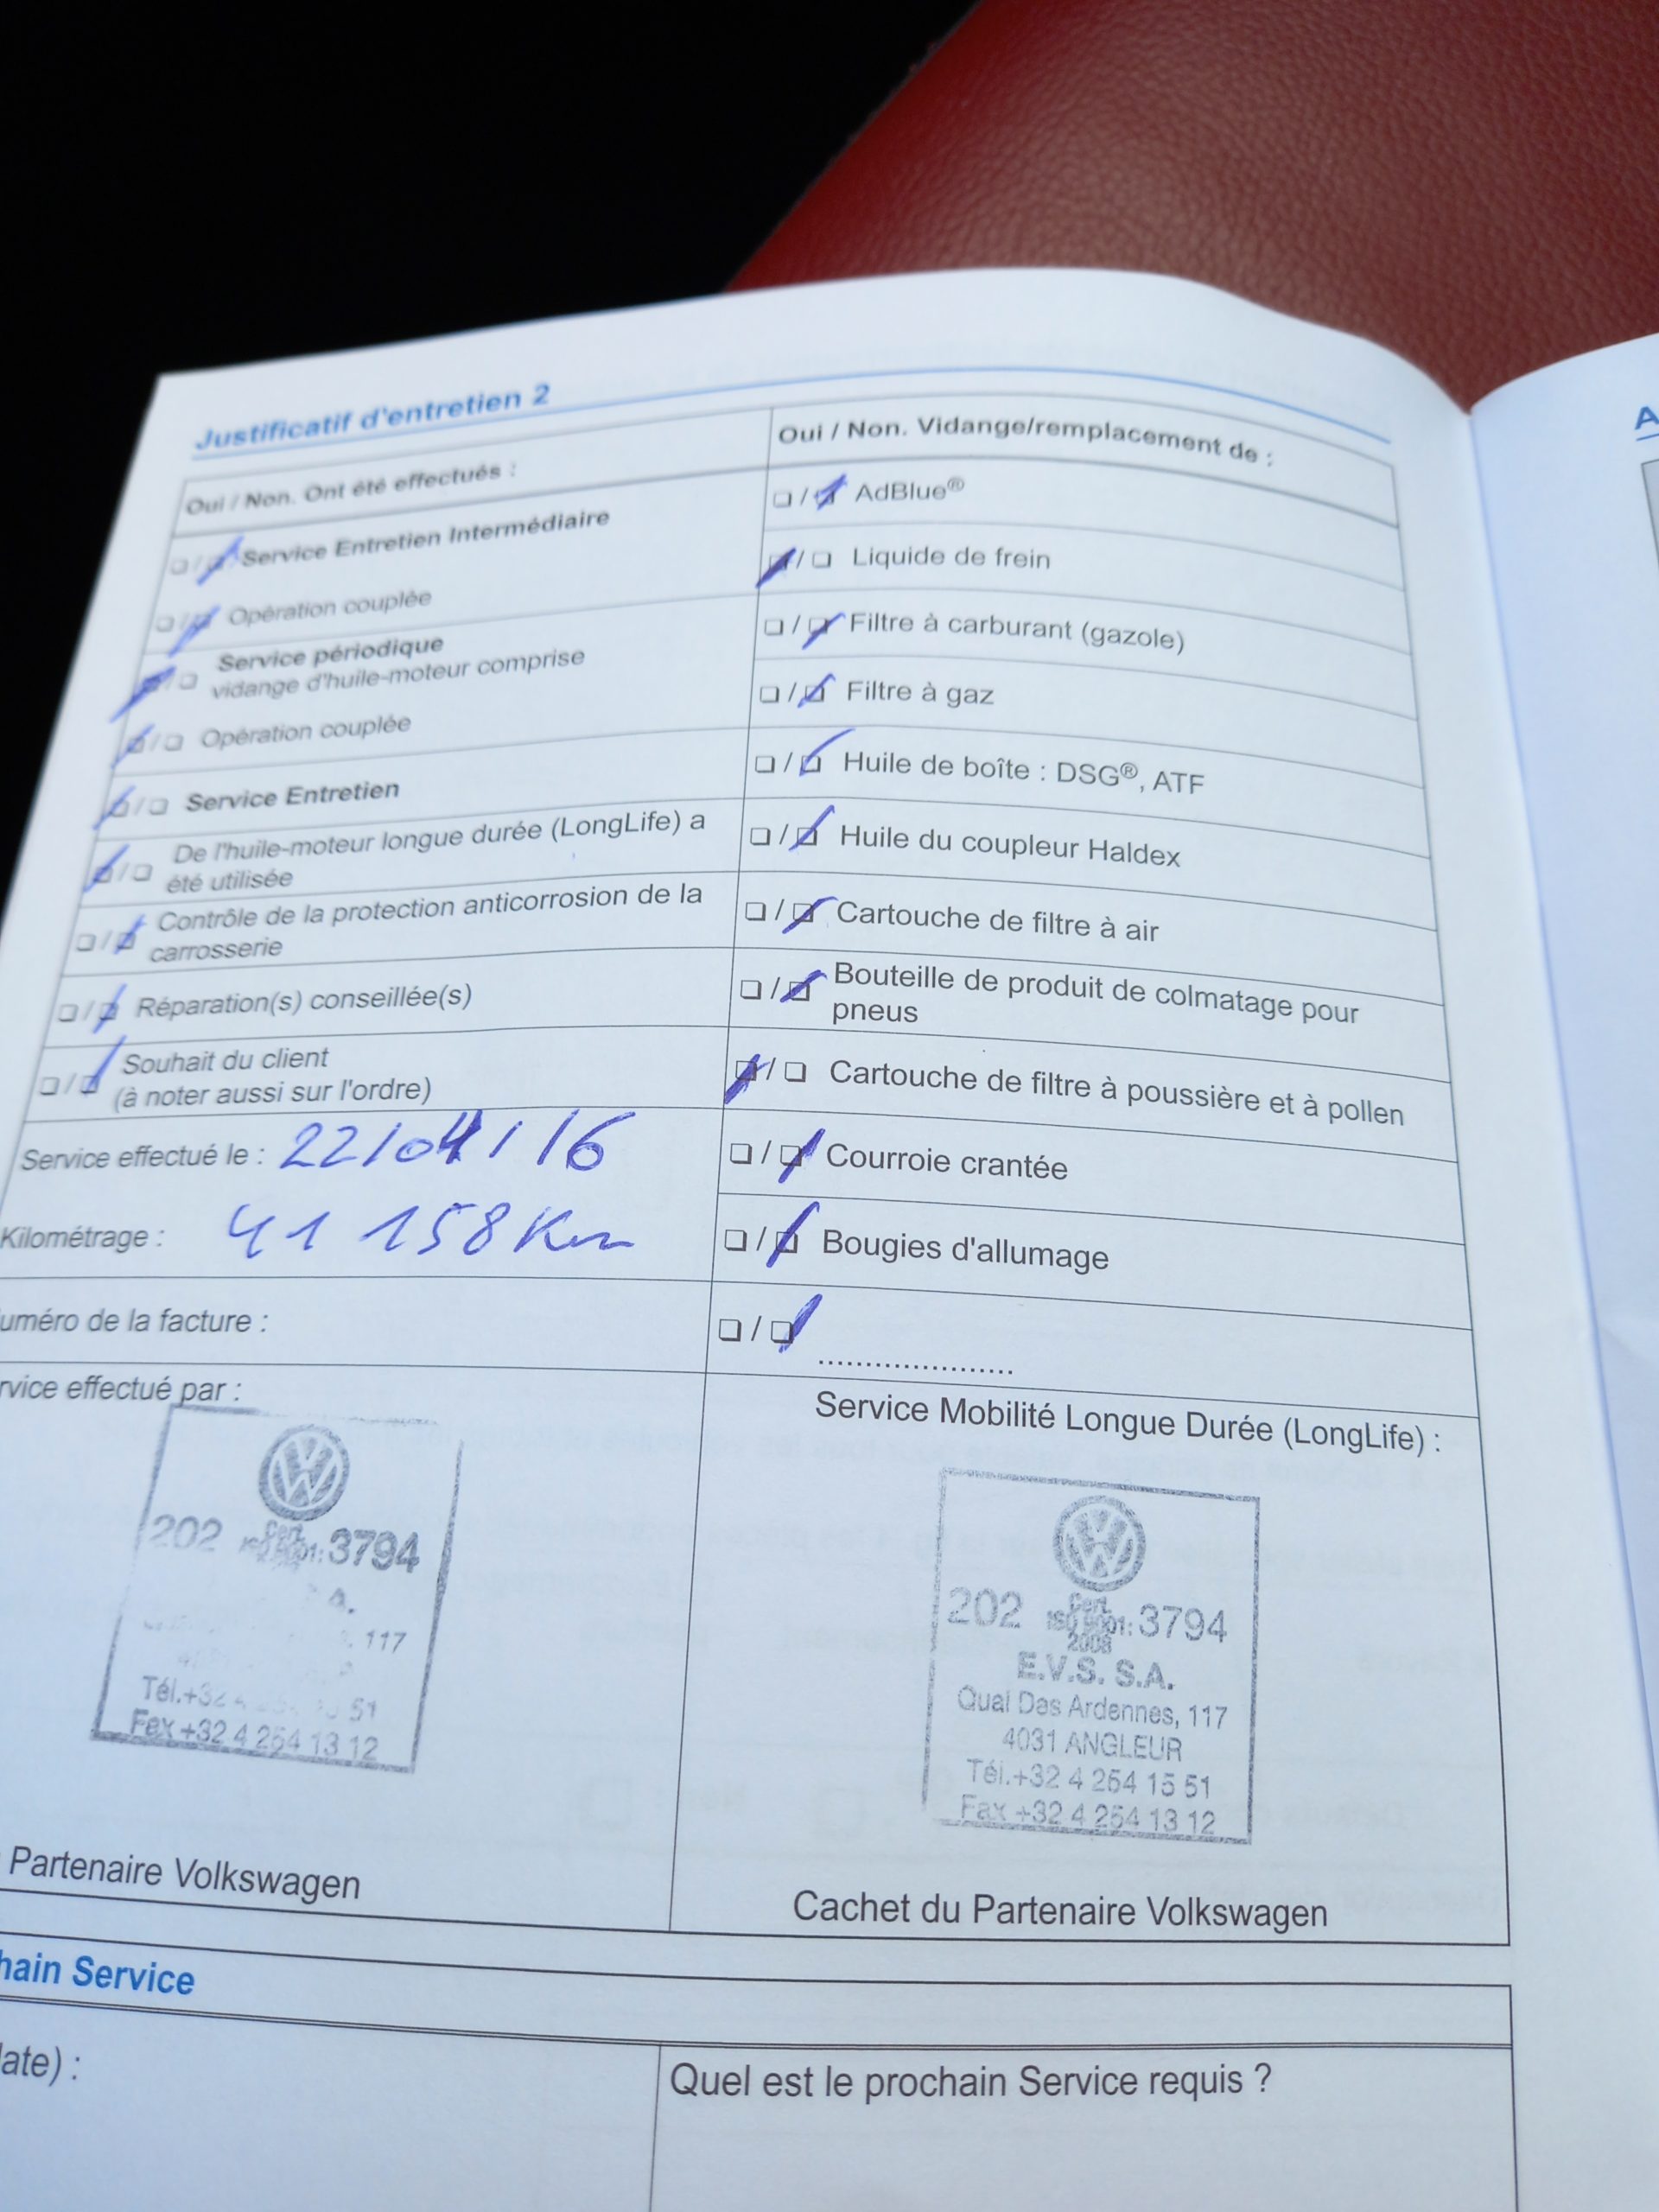 Justificatif d'entretien 2
Oui / Non. Ont été effectués :
Service Entretien Intermédiaire
Opération couplée
Service périodique
vidange d'huile-moteur comprise
Opération couplée
Service Entretien
De l'huile-moteur longue durée (LongLife) a
été utilisée
Contrôle de la protection anticorrosion de la
carrosserie
Réparation(s) conseillée(s)
Souhait du client
(à noter aussi sur l'ordre)
Service effectué le : 22/04/16
Kilométrage : 41 158 Km
uméro de la facture :
rvice effectué par :
202 3794
117
Tél.+32 4 51
Fax +32 4 264 13 12
Partenaire Volkswagen
Oui / Non. Vidange/remplacement de :
AdBlue®
Liquide de frein
Filtre à carburant (gazole)
Filtre à gaz
Huile de boîte : DSG®, ATF
Huile du coupleur Haldex
Cartouche de filtre à air
Bouteille de produit de colmatage pour
pneus
Cartouche de filtre à poussière et à pollen
Courroie crantée
Bougies d'allumage
.....................
Service Mobilité Longue Durée (LongLife) :
Cert.
202 ISO 9001: 3794
2008
E.V.S. S.A.
Quai Des Ardennes, 117
4031 ANGLEUR
Tél.+32 4 264 15 51
Fax +32 4 264 13 12
Cachet du Partenaire Volkswagen
hain Service
late) :
Quel est le prochain Service requis ?
A